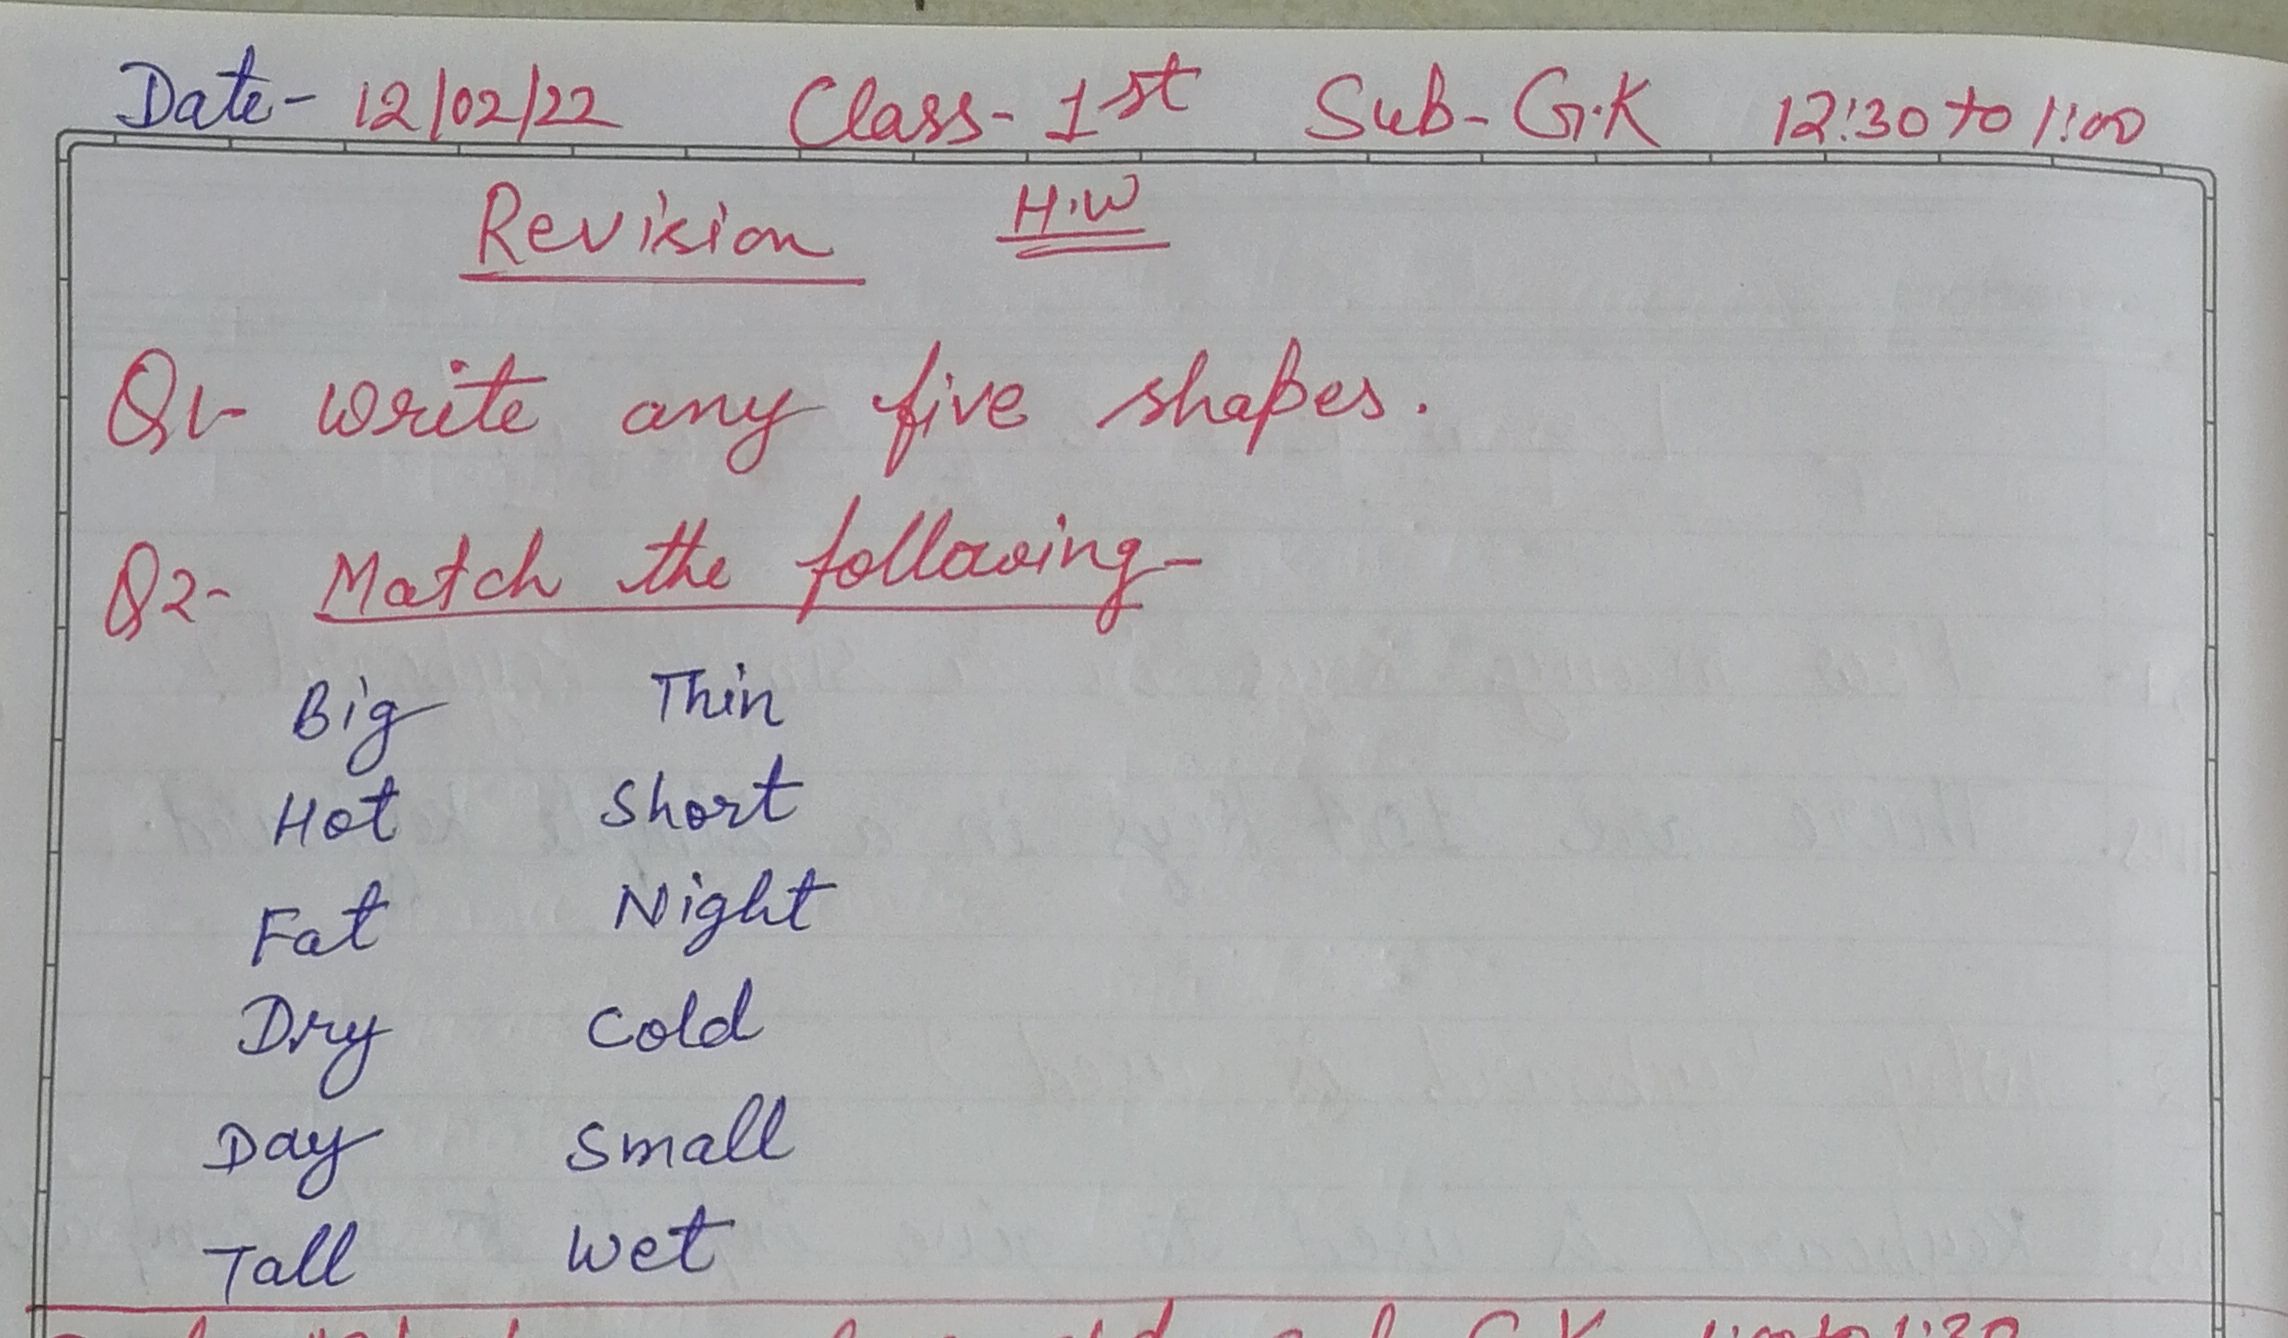 Date- 12/02/22 Class- 1st Sub- G.K 12:30 to 1:00
Revision H.W
Q1- write any five shapes.
Q2- Match the following-
Big Thin
Hot Short
Fat Night
Dry Cold
Day Small
Tall Wet